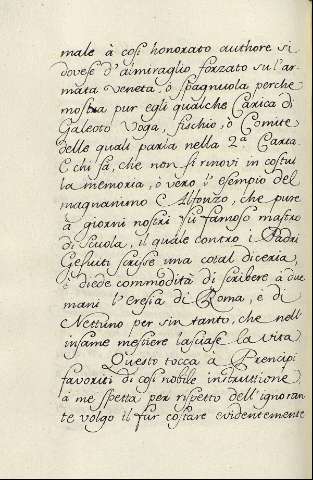 male à così honorato authore si
dovese d'almiraglio forzato su l'ar-
mata veneta, ò spagnuola perche
mostra pur egli qualche Carica di
Galeoto Voga, fischio, ò Comite
delle quali parla nella 2ª Carta.
E chi sà, che non si rinovi in costui
la memoria, ò vero l'esempio del
magnanimo C Alfonzo, che pure
à giorni nostri fù famoso mastro
di scuola, il quale contro i Padri
Gesuiti scrisse una cotal diceria,
e diede commodità di scribere à due
mani l'eresia di Roma, e di
Nettuno per sin tanto, che nell'
infame mestiere lasciasse la vita.
Questo tocca à Prencipi
favoriti di così nobile instruttione,
à me spetta per rispetto dell'ignoran
te volgo il fur costare evidentemente